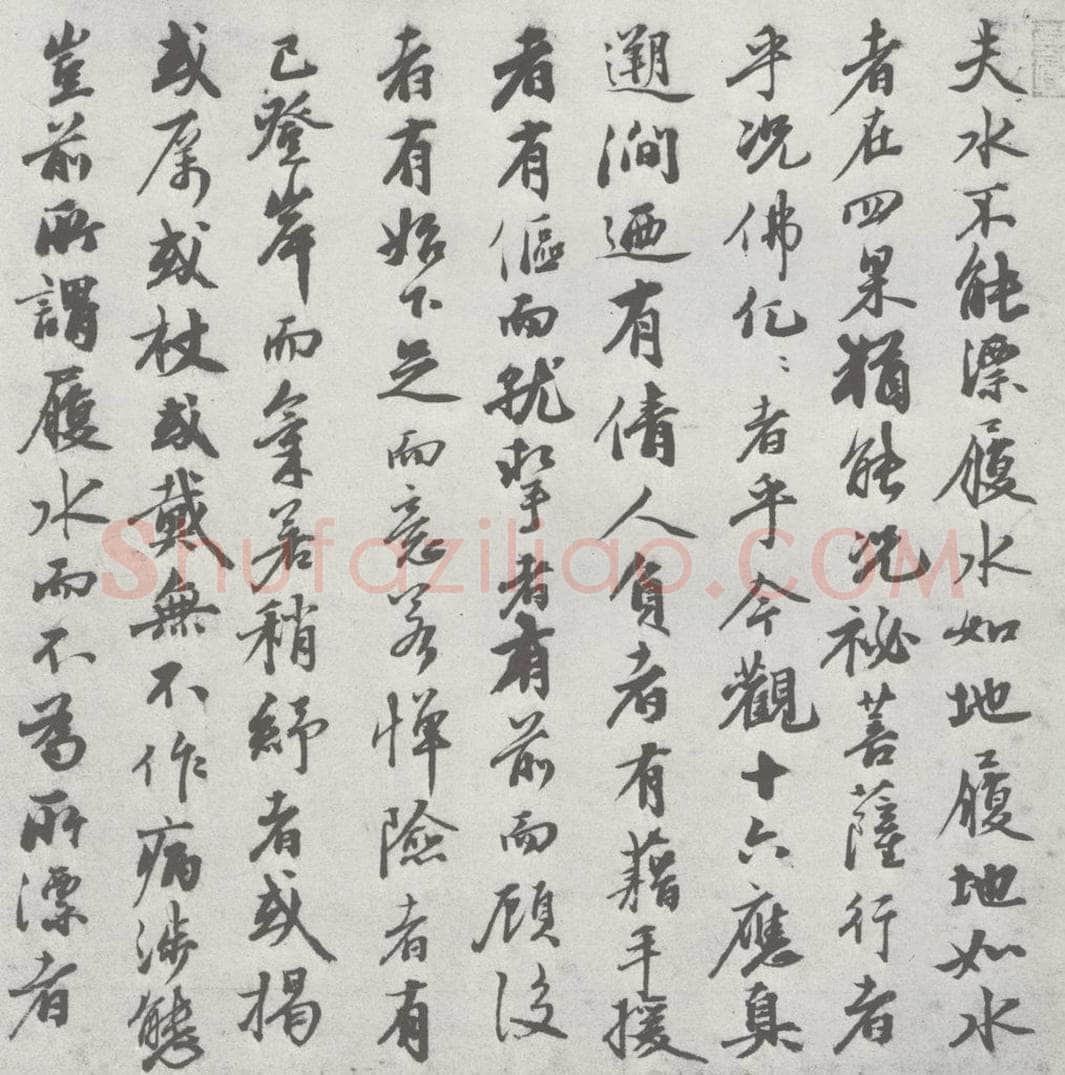 夫水不能漂履水如地履地如水
者在四果猶能况祕菩薩行者
乎况佛仛〻者乎今觀十六應真
遡澗迺有倩人負者有藉手援
者有傴而就掔者有前而顧後
者有始下足而意若憚險者有
已登岸而氣若稍紓者或揭
或厲或杖或戴無不作病涉態
豈前所謂履水而不為所漂者
Shufaziliao.COM